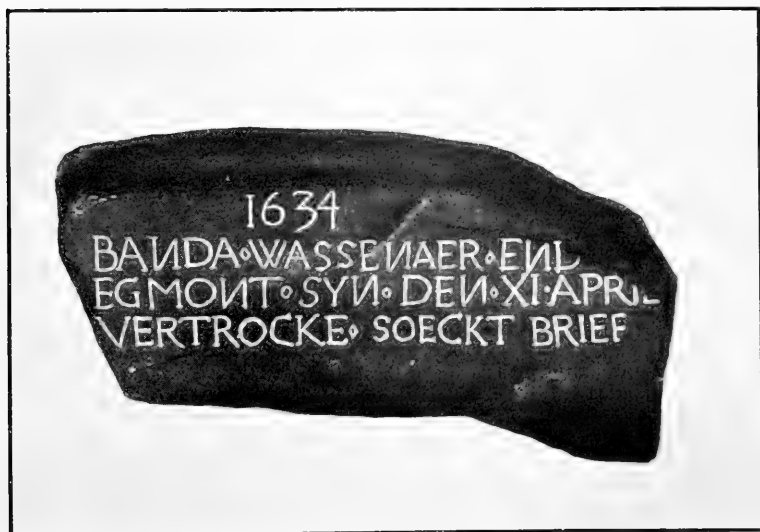 1634
BANDA∘WASSENAER∘END
EGMONT∘SYN∘DEN∘XI∘APRIL
VERTROCKE∘ SOECKT BRIEF